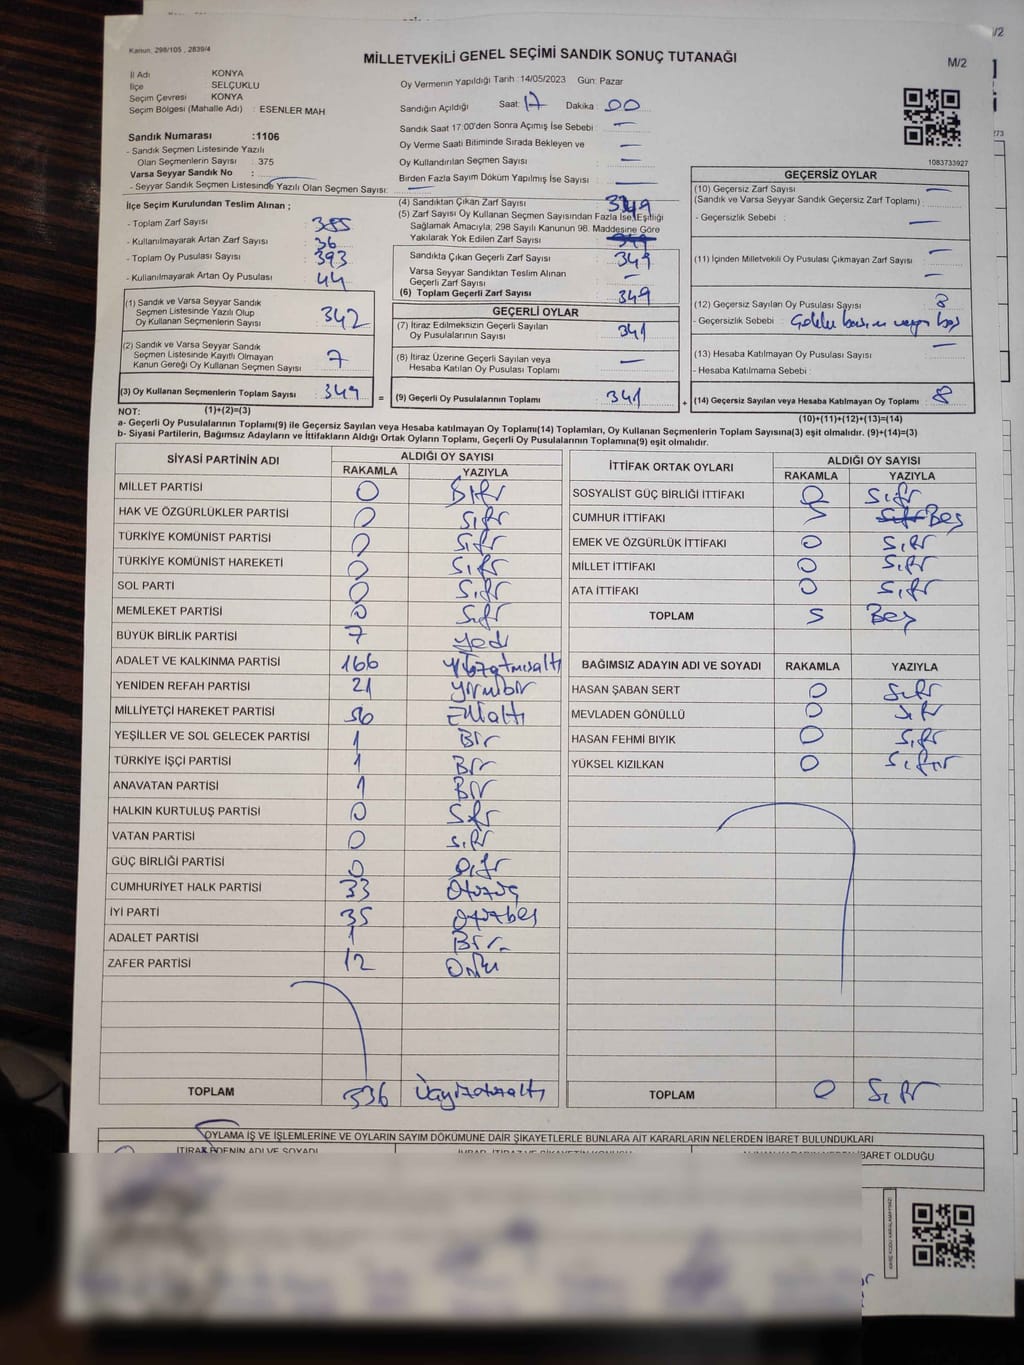 Kanun: 298/105 , 2839/4
MİLLETVEKİLİ GENEL SEÇİMİ SANDIK SONUÇ TUTANAĞI
M/2
İl Adı KONYA
İlçe SELÇUKLU
Seçim Çevresi KONYA
Seçim Bölgesi (Mahalle Adı) : ESENLER MAH
Oy Vermenin Yapıldığı Tarih :14/05/2023 Gün: Pazar
Sandığın Açıldığı Saat: 17 Dakika : 00
Sandık Saat 17:00'den Sonra Açımış İse Sebebi : —
Oy Verme Saati Bitiminde Sırada Bekleyen ve
Oy Kullandırılan Seçmen Sayısı : —
Birden Fazla Sayım Döküm Yapılmış İse Sayısı : —
1083733927
Sandık Numarası :1106
- Sandık Seçmen Listesinde Yazılı
Olan Seçmenlerin Sayısı : 375
Varsa Seyyar Sandık No :
- Seyyar Sandık Seçmen Listesinde Yazılı Olan Seçmen Sayısı: —
İlçe Seçim Kurulundan Teslim Alınan ;
- Toplam Zarf Sayısı : 385
- Kullanılmayarak Artan Zarf Sayısı : 36
- Toplam Oy Pusulası Sayısı : 393
- Kullanılmayarak Artan Oy Pusulası : 44
(1) Sandık ve Varsa Seyyar Sandık
Seçmen Listesinde Yazılı Olup
Oy Kullanan Seçmenlerin Sayısı : 342
(2) Sandık ve Varsa Seyyar Sandık
Seçmen Listesinde Kayıtlı Olmayan
Kanun Gereği Oy Kullanan Seçmen Sayısı : 7
(3) Oy Kullanan Seçmenlerin Toplam Sayısı : 349
(4) Sandıktan Çıkan Zarf Sayısı : 349
(5) Zarf Sayısı Oy Kullanan Seçmen Sayısından Fazla İse, Eşitliği
Sağlamak Amacıyla, 298 Sayılı Kanunun 98. Maddesine Göre
Yakılarak Yok Edilen Zarf Sayısı : 349
Sandıkta Çıkan Geçerli Zarf Sayısı : 349
Varsa Seyyar Sandıktan Teslim Alınan
Geçerli Zarf Sayısı : —
(6) Toplam Geçerli Zarf Sayısı : 349
GEÇERLİ OYLAR
(7) İtiraz Edilmeksizin Geçerli Sayılan
Oy Pusulalarının Sayısı : 341
(8) İtiraz Üzerine Geçerli Sayılan veya
Hesaba Katılan Oy Pusulası Toplamı : —
= (9) Geçerli Oy Pusulalarının Toplamı : 341
GEÇERSİZ OYLAR
(10) Geçersiz Zarf Sayısı : —
(Sandık ve Varsa Seyyar Sandık Geçersiz Zarf Toplamı) :
- Geçersizlik Sebebi : —
(11) İçinden Milletvekili Oy Pusulası Çıkmayan Zarf Sayısı : —
—
(12) Geçersiz Sayılan Oy Pusulası Sayısı : 8
- Geçersizlik Sebebi :
(13) Hesaba Katılmayan Oy Pusulası Sayısı : —
- Hesaba Katılmama Sebebi :
+ (14) Geçersiz Sayılan veya Hesaba Katılmayan Oy Toplamı : 8
NOT: (1)+(2)=(3)
(10)+(11)+(12)+(13)=(14)
a- Geçerli Oy Pusulalarının Toplamı(9) ile Geçersiz Sayılan veya Hesaba Katılmayan Oy Toplamı(14) Toplamları, Oy Kullanan Seçmenlerin Toplam Sayısına(3) eşit olmalıdır. (9)+(14)=(3)
b- Siyasi Partilerin, Bağımsız Adayların ve İttifakların Aldığı Ortak Oyların Toplamı, Geçerli Oy Pusulalarının Toplamına(9) eşit olmalıdır.
SİYASİ PARTİNİN ADI ALDIĞI OY SAYISI
RAKAMLA YAZIYLA
MİLLET PARTİSİ 0 Sıfır
HAK VE ÖZGÜRLÜKLER PARTİSİ 0 Sıfır
TÜRKİYE KOMÜNİST PARTİSİ 0 Sıfır
TÜRKİYE KOMÜNİST HAREKETİ 0 Sıfır
SOL PARTİ 0 Sıfır
MEMLEKET PARTİSİ 0 Sıfır
BÜYÜK BİRLİK PARTİSİ 7 Yedi
ADALET VE KALKINMA PARTİSİ 166 Yüzatmışaltı
YENİDEN REFAH PARTİSİ 21 Yirmibir
MİLLİYETÇİ HAREKET PARTİSİ 56 Ellialtı
YEŞİLLER VE SOL GELECEK PARTİSİ 1 Bir
TÜRKİYE İŞÇİ PARTİSİ 1 Bir
ANAVATAN PARTİSİ 1 Bir
HALKIN KURTULUŞ PARTİSİ 0 Sıfır
VATAN PARTİSİ 0 Sıfır
GÜÇ BİRLİĞİ PARTİSİ 0 Sıfır
CUMHURİYET HALK PARTİSİ 33 Otuzüç
İYİ PARTİ 35 Otuzbeş
ADALET PARTİSİ 1 Bir
ZAFER PARTİSİ 12 Oniki
TOPLAM 336 Üçyüzotuzaltı
İTTİFAK ORTAK OYLARI ALDIĞI OY SAYISI
RAKAMLA YAZIYLA
SOSYALİST GÜÇ BİRLİĞİ İTTİFAKI 0 Sıfır
CUMHUR İTTİFAKI 5 Sıfır Beş
EMEK VE ÖZGÜRLÜK İTTİFAKI 0 Sıfır
MİLLET İTTİFAKI 0 Sıfır
ATA İTTİFAKI 0 Sıfır
TOPLAM 5 Beş
BAĞIMSIZ ADAYIN ADI VE SOYADI RAKAMLA YAZIYLA
HASAN ŞABAN SERT 0 Sıfır
MEVLADEN GÖNÜLLÜ 0 Sıfır
HASAN FEHMİ BIYIK 0 Sıfır
YÜKSEL KIZILKAN 0 Sıfır
TOPLAM 0 Sıfır
OYLAMA İŞ VE İŞLEMLERİNE VE OYLARIN SAYIM DÖKÜMÜNE DAİR ŞİKAYETLERLE BUNLARA AİT KARARLARIN NELERDEN İBARET BULUNDUKLARI
İTİRAZ EDENİN ADI VE SOYADI